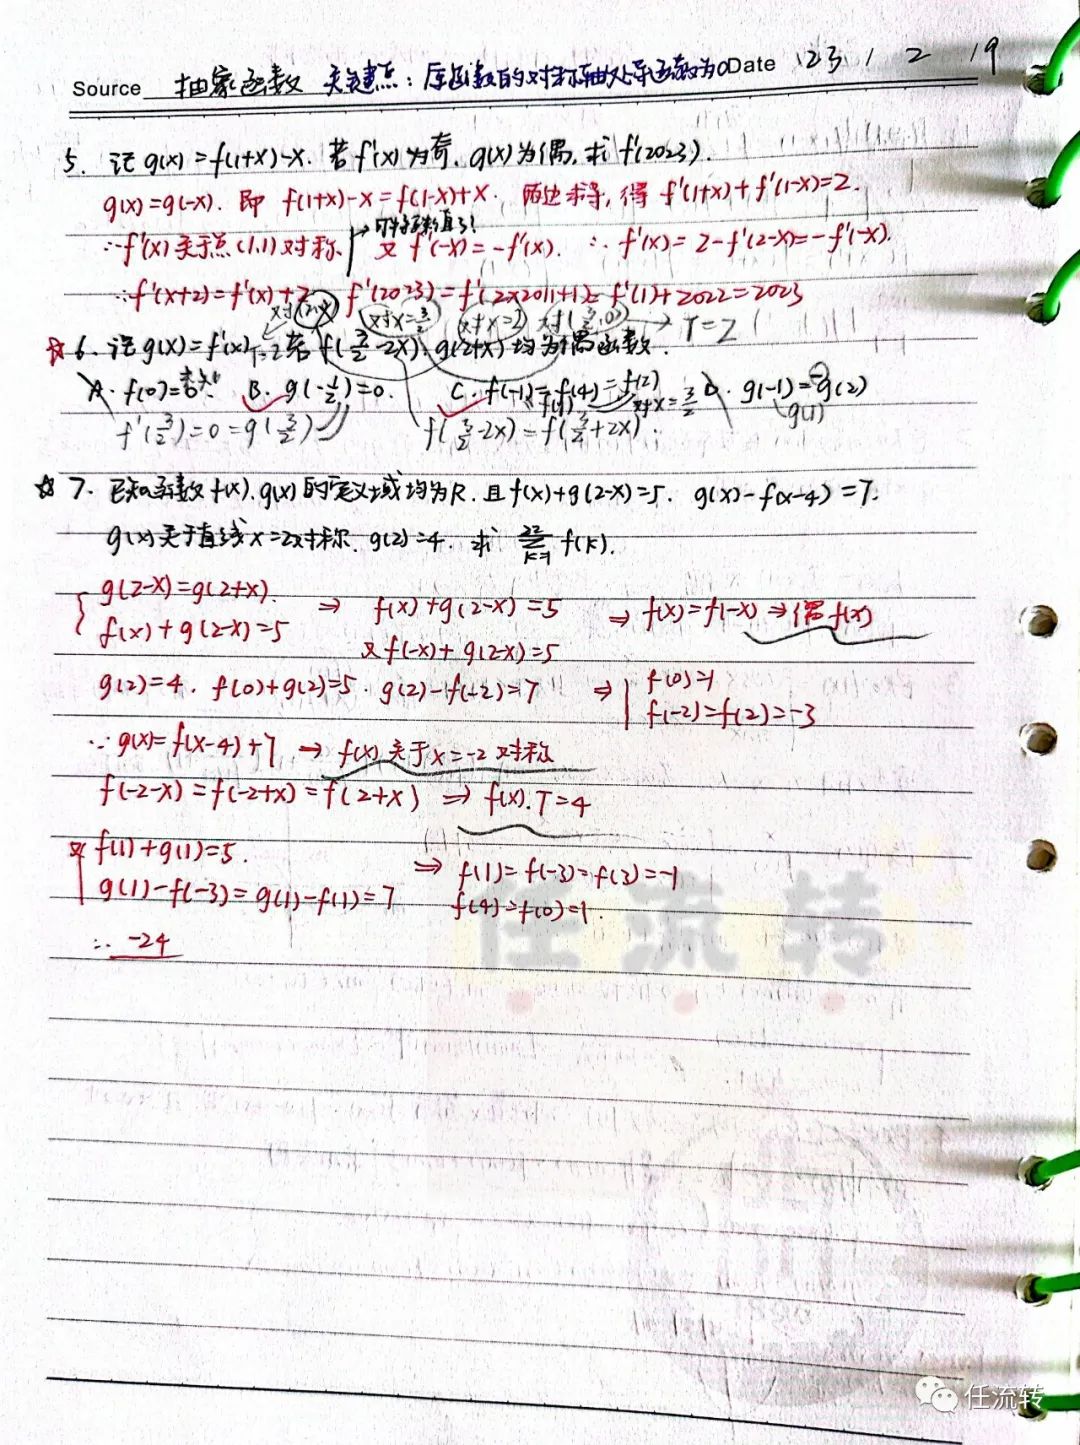 Source 抽象函数 关键点：原函数的对称轴处导函数为0 Date 23 1 2 19
5. 记g(x)=f(1+x)-x. 若f'(x)为奇, g(x)为偶, 求f'(2023).
g(x)=g(-x). 即 f(1+x)-x=f(1-x)+x. 两边求导, 得 f'(1+x)+f'(1-x)=2.
∴f'(x)关于点(1,1)对称. 又 f'(-x)=-f'(x). ∴ f'(x)=2-f'(2-x)=-f'(-x).
∴f'(x+2)=f'(x)+2 f'(2023)=f'(2×2011+1)=f'(1)+2022=2023
对x=3/2 对x=2 对(3/2,0) → T=2
☆6. 记g(x)=f'(x) T=2 若 f(3/2-2x), g(2+x)均为偶函数.
A. f(0)=0. B. g(-1/2)=0. C. f(-1)=f(4)=f(2) 对x=3/2 D. g(-1)=g(2)
f'(3/2)=0=g(3/2) f(3/2-2x)=f(3/2+2x). f(1) g(1)
☆7. 已知函数f(x), g(x)的定义域均为R, 且f(x)+g(2-x)=5. g(x)-f(x-4)=7.
g(x)关于直线x=2对称. g(2)=4. 求 22∑k=1 f(k).
g(2-x)=g(2+x).
f(x)+g(2-x)=5 ⇒ f(x)+g(2-x)=5 ⇒ f(x)=f(-x) ⇒ 偶f(x)
又f(-x)+g(2-x)=5
g(2)=4. f(0)+g(2)=5. g(2)-f(-2)=7 ⇒ f(0)=1
f(-2)=f(2)=-3
∵g(x)=f(x-4)+7 → f(x)关于x=-2对称
f(-2-x)=f(-2+x)=f(2+x) ⇒ f(x). T=4
又 f(1)+g(1)=5.
g(1)-f(-3)=g(1)-f(1)=7 ⇒ f(1)=f(-3)=f(3)=-1
f(4)=f(0)=1.
∴ -24
任流转
任流转